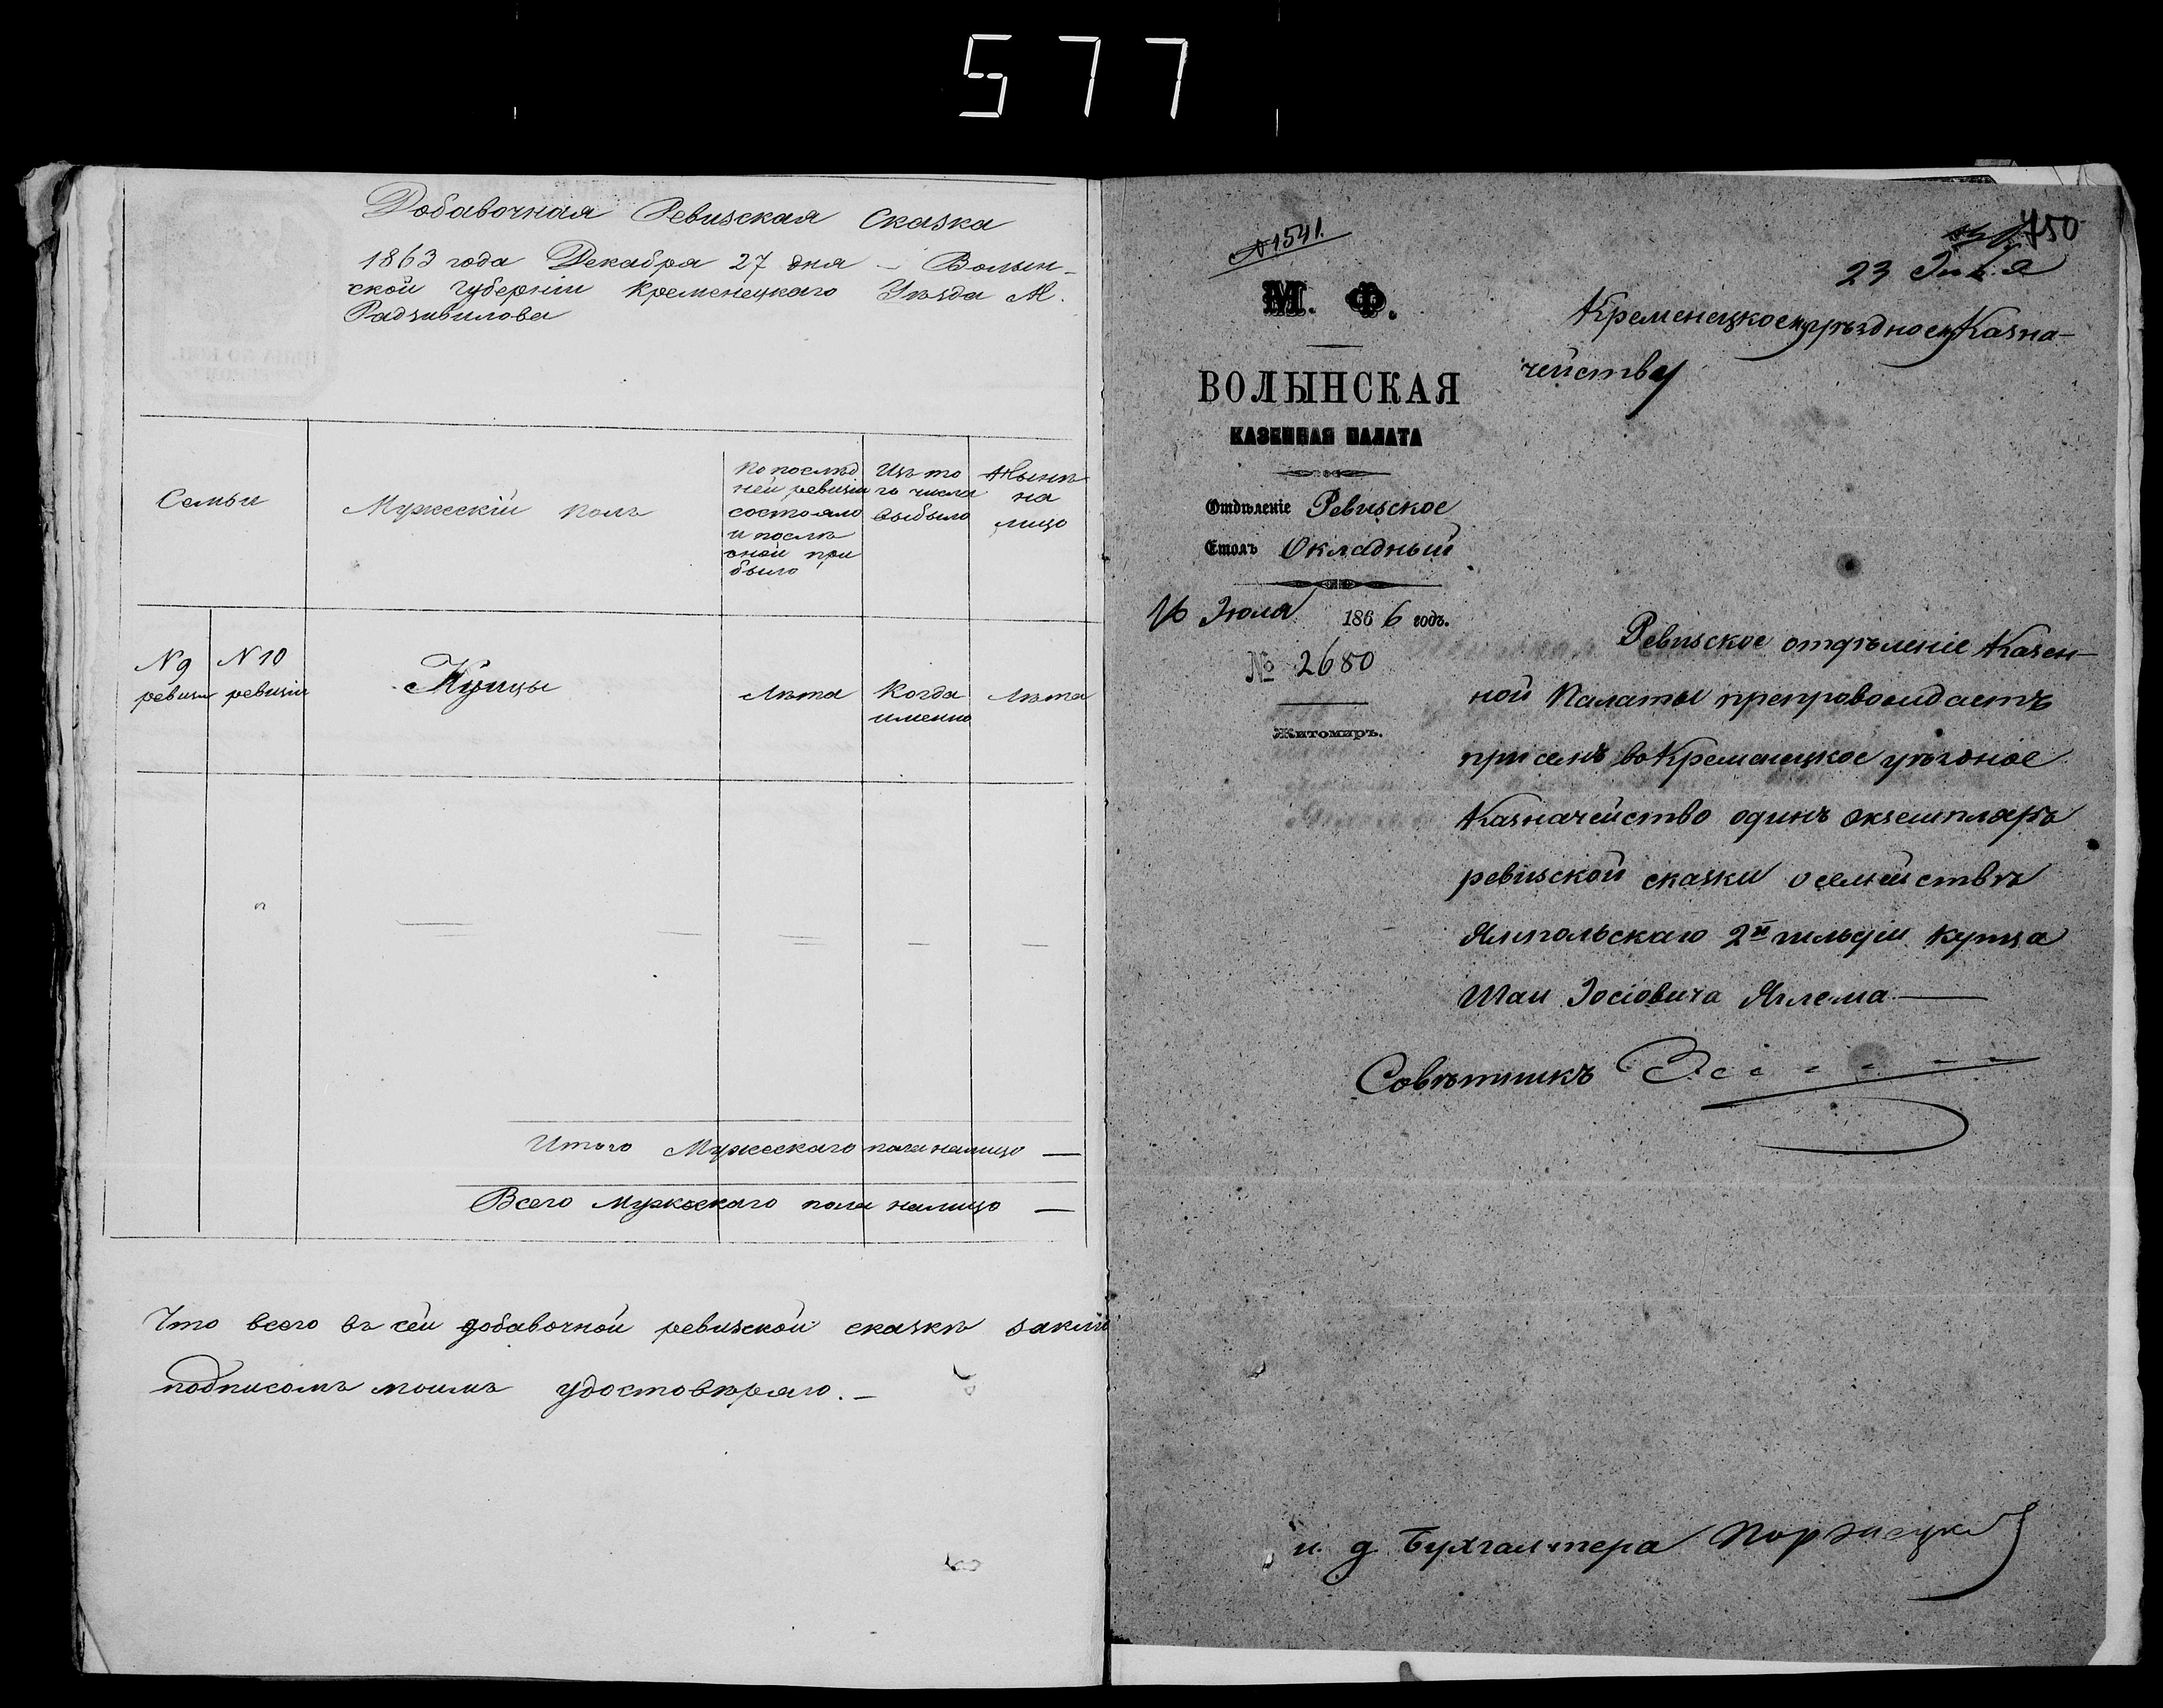 577
Добавочная Ревизская Сказка
1863 года Декабра 27 дня – Волын-
ской Губернии Кременецкаго Уѣзда М.
Радзивилова
Семьи
Мужескій полъ
По послѣд
ней ревизіи
состояло
и послѣ
оной при
было
Изъ то
го числа
выбыло
Нынѣ
на
лицо
N 9
ревизіи
N 10
ревизіи
Купцы
Лѣта
Когда
именно
Лѣта
Итого Мужескаго пола налицо —
Всего мужескаго пола налицо —
Что всего въ сей добавочной ревизской сказкѣ
подписомъ моимъ удостовѣряю. –
№ 1541.
750
23
М. Ф.
ВОЛЫНСКАЯ
КАЗЕННАЯ ПАЛАТА
Отдѣленіе Ревизское
Столъ Окладный
16 Іюля 1866 годъ.
№ 2680
Житомиръ.
Кременецкому уѣздному Казна-
чейству
Ревизское отдѣленіе Казен-
ной Палаты препровождаетъ
при семъ во Кременецкое уѣздное
Казначейство одинъ экземпляръ
ревизской сказки о семействѣ
Ямпольскаго 2й гильдіи купца
Шаи Іосіовича —
Совѣтникъ
и. д. Бухгалтера